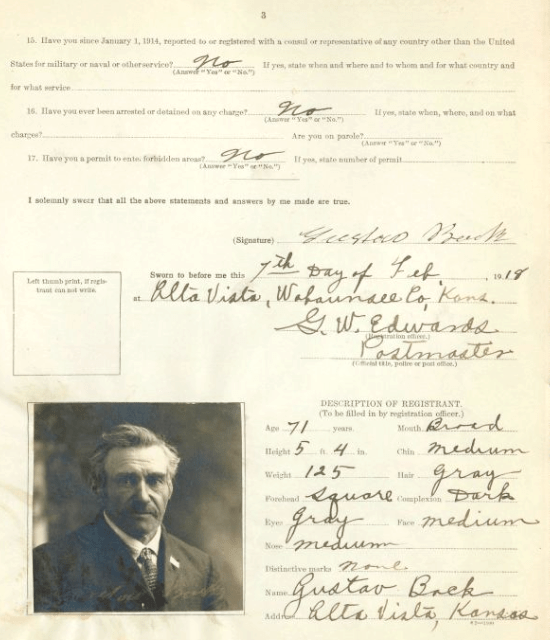 3
15. Have you since January 1, 1914, reported to or registered with a consul or representative of any country other than the United
States for military or naval or other service? No If yes, state when and where and to whom and for what country and
(Answer "Yes" or "No.")
for what service
16. Have you ever been arrested or detained on any charge? No If yes, state when, where, and on what
(Answer "Yes" or "No.")
charges? Are you on parole?
(Answer "Yes" or "No.")
17. Have you a permit to enter forbidden areas? No If yes, state number of permit
(Answer "Yes" or "No.")
I solemnly swear that all the above statements and answers by me made are true.
(Signature) Gustav Back
Left thumb print, if regis-
trant can not write.
Sworn to before me this 7th Day of Feb, 1918
at Alta Vista, Wabaunsee Co, Kans.
G. W. Edwards
(Registration officer.)
Postmaster
(Official title, police or post office.)
DESCRIPTION OF REGISTRANT.
(To be filled in by registration officer.)
Age 71 years. Mouth Broad
Height 5 ft. 4 in. Chin medium
Weight 125 Hair Gray
Forehead Square Complexion Dark
Eyes Gray Face medium
Nose medium
Distinctive marks none
Name Gustav Back
Address Alta Vista, Kansas